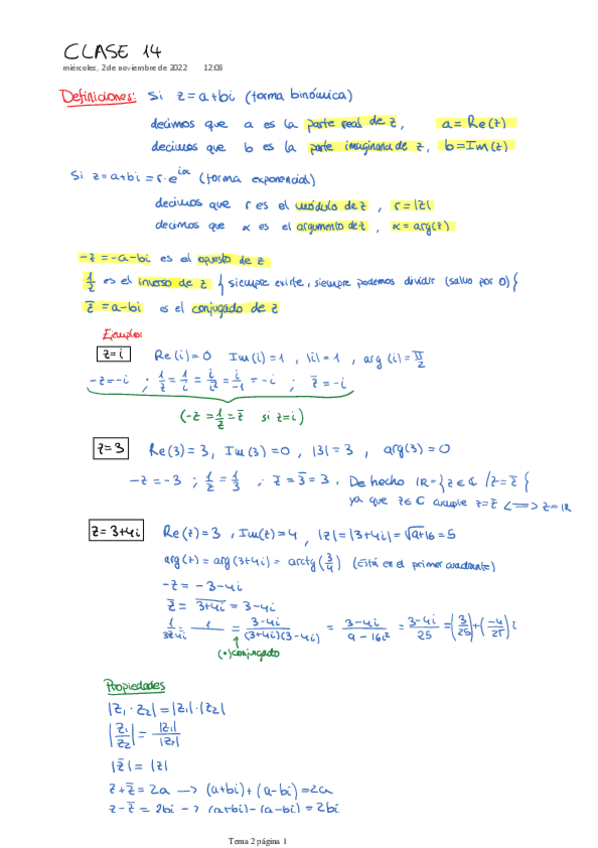 CLASE 14
miércoles, 2 de noviembre de 2022 12:06
Definiciones: Si z = a+bi (forma binómica)
decimos que a es la parte real de z, a = Re(z)
decimos que b es la parte imaginaria de z, b = Im(z)
Si z = a+bi = r·e^{iα} (forma exponencial)
decimos que r es el módulo de z, r = |z|
decimos que α es el argumento de z, α = arg(z)
-z = -a-bi es el opuesto de z
1/z es el inverso de z { siempre existe, siempre podemos dividir (salvo por 0) {
z̅ = a-bi es el conjugado de z
Ejemplos
z=i Re(i)=0 Im(i)=1, |i|=1, arg(i)=π/2
-z=-i ; 1/z = 1/i = i/i² = i/-1 = -i ; z̅=-i
(-z = 1/z = z̅ si z=i)
z=3 Re(3)=3, Im(3)=0, |3|=3, arg(3)=0
-z=-3 ; 1/z = 1/3 ; z̅ = 3̅ = 3. De hecho ℝ={z∈ℂ / z=z̅ {
ya que z∈ℂ cumple z=z̅ <=> z=ℝ
z=3+4i Re(z)=3, Im(z)=4, |z|=|3+4i|=√9+16=5
arg(z) = arg(3+4i) = arctg(3/4) (Está en el primer cuadrante)
-z = -3-4i
z̅ = \overline{3+4i} = 3-4i
1/3+4i = 1/ = 3-4i/(3+4i)(3-4i) = 3-4i/9-16i² = 3-4i/25 = (3/25)+(-4/25)i
(·)conjugado
Propiedades
|z₁·z₂|=|z₁|·|z₂|
|z₁/z₂| = |z₁|/|z₂|
|z̅| = |z|
z+z̅ = 2a -> (a+bi)+(a-bi)=2a
z-z̅ = 2bi -> (a+bi)-(a-bi)=2bi
Tema 2 página 1